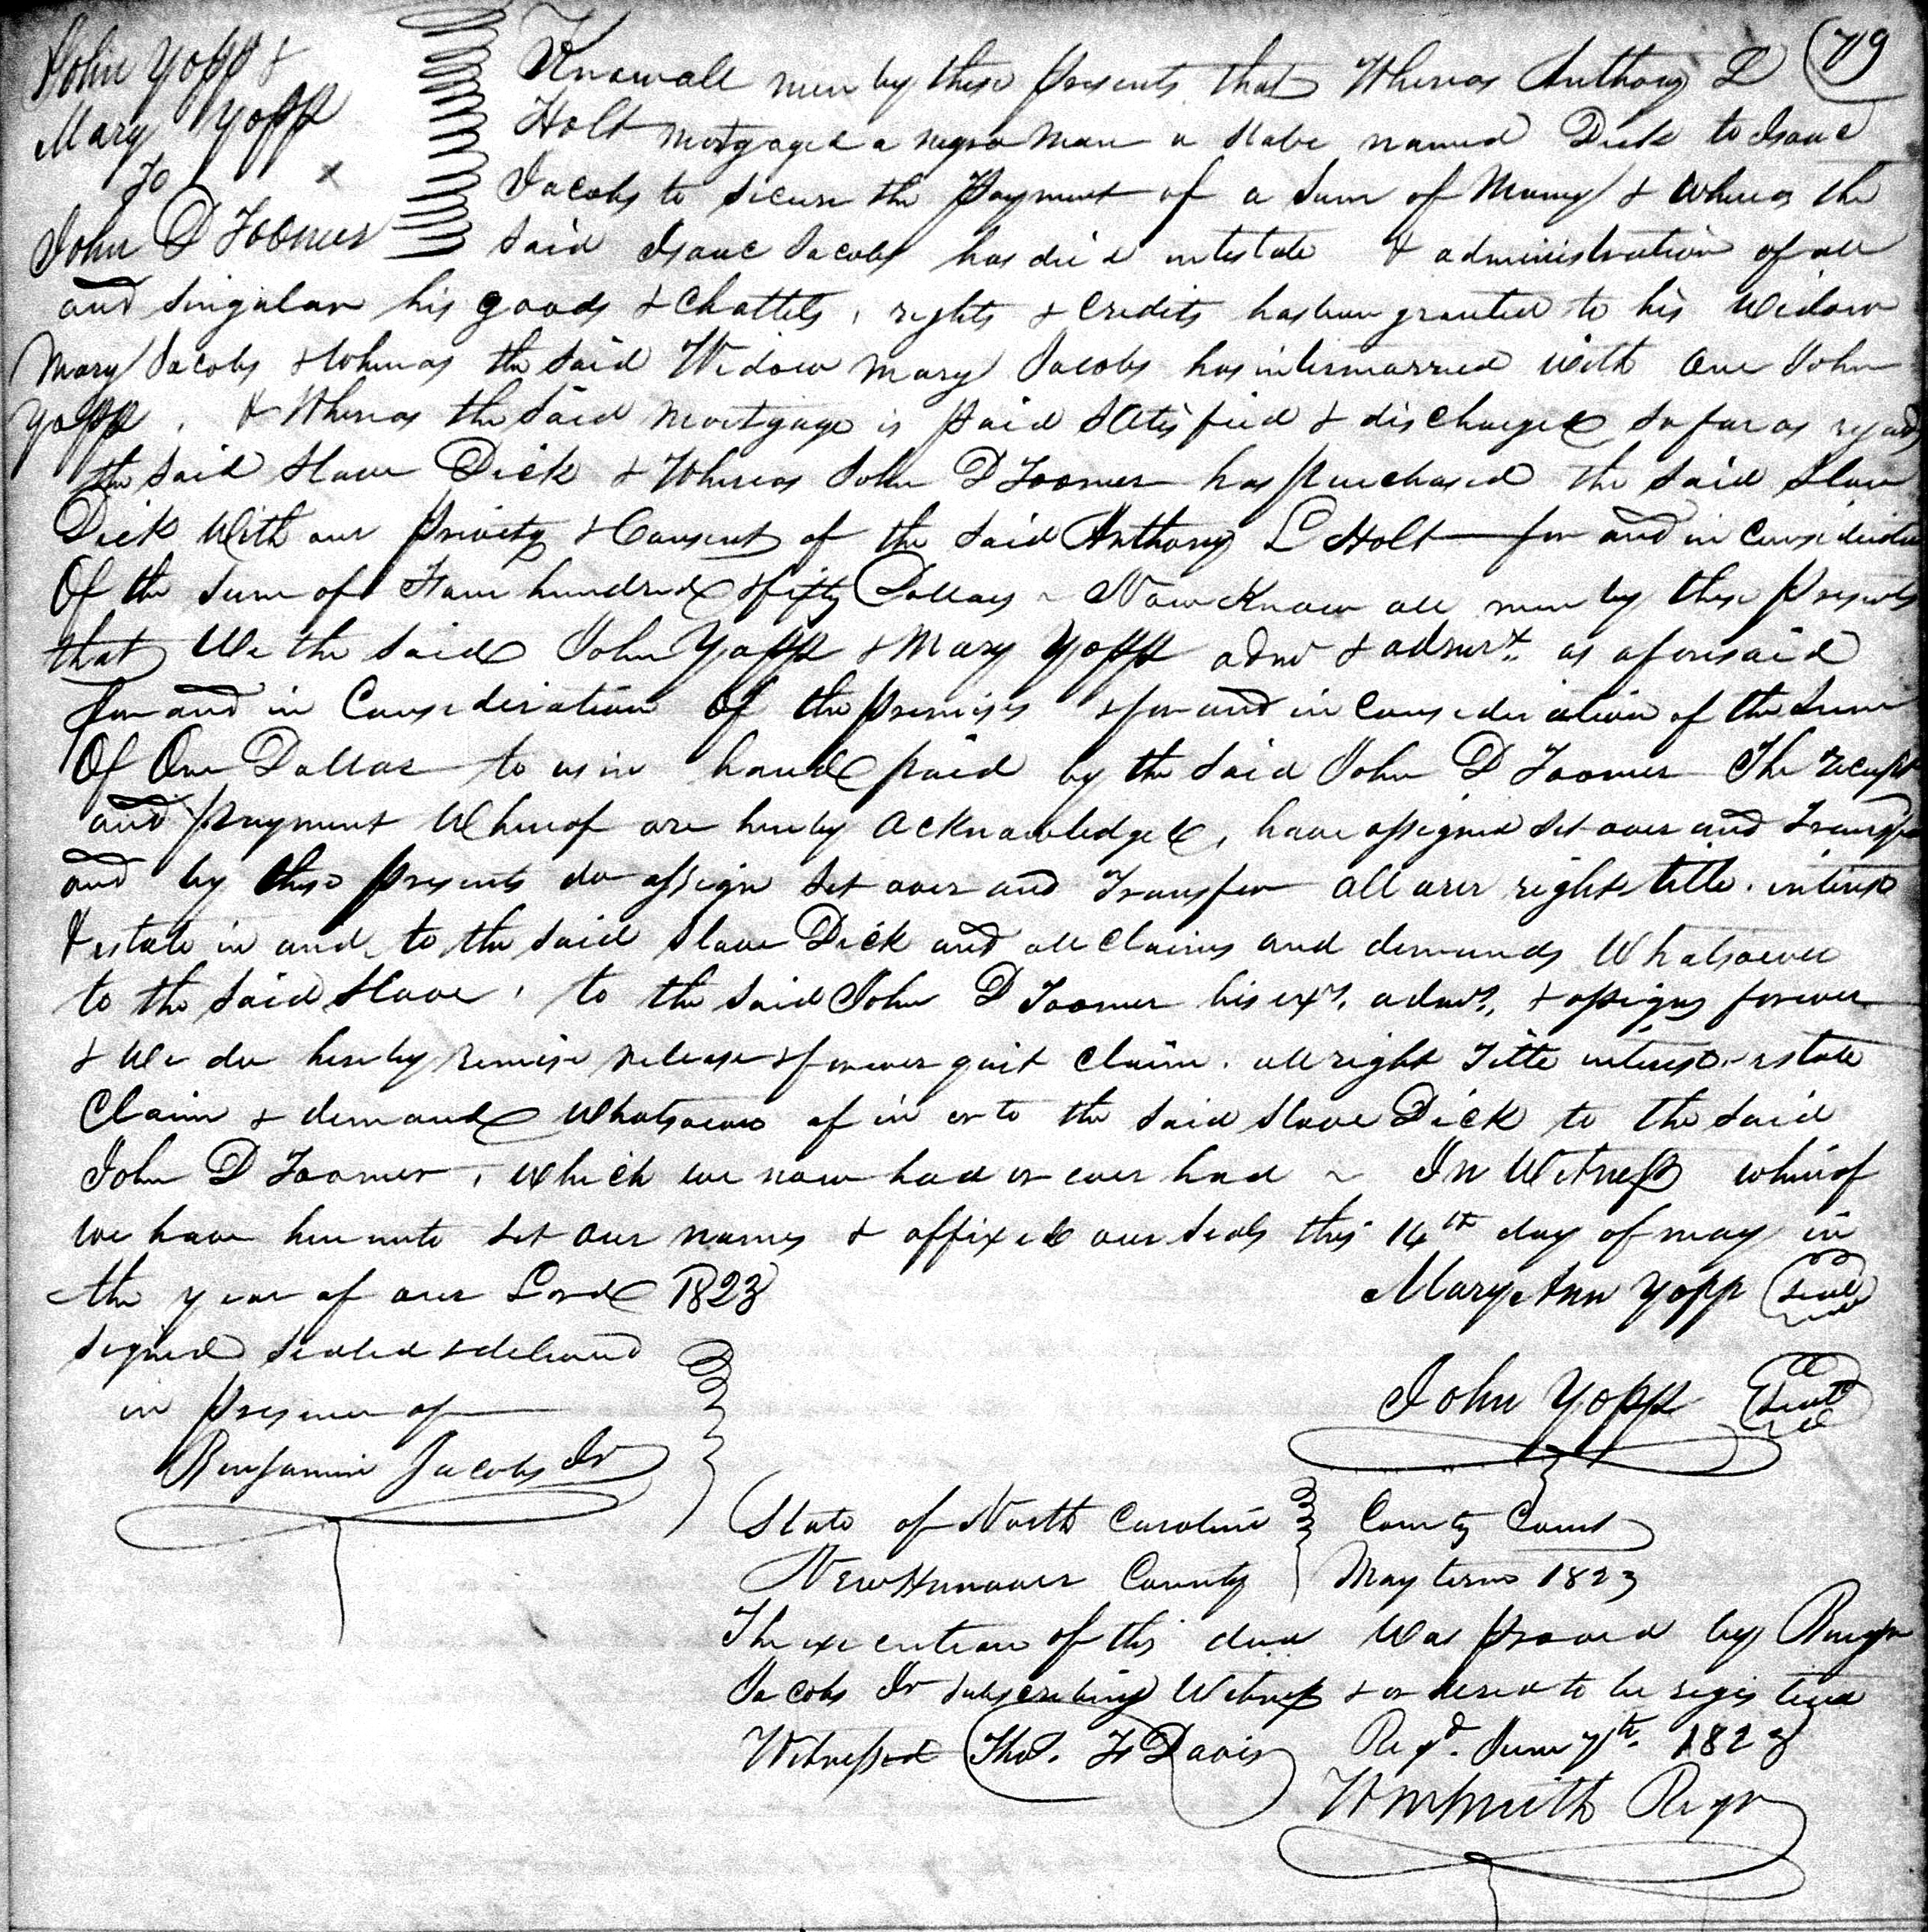 John Yopp &
Mary Yopp
To
John D Toomer
79
Know all men by these presents that Whereas Anthony L
Holt mortgaged a negro man a Slave named Dick to Isaac
Jacobs to secure the Payment of a Sum of Money & Whereas the
Said Isaac Jacobs has died intestate & administration of all
and Singular his goods & Chattels, rights & Credits has been granted to his Widow
Mary Jacobs & Whereas the Said Widow Mary Jacobs has intermarried with one John
Yopp, & Whereas the Said Mortgage is paid Satisfied & discharged So far as regards
the Said Slave Dick & Whereas John D Toomer has purchased the Said Slave
Dick With our privity & Consent of the Said Anthony L Holt for and in Consideration
Of the Sum of Four hundred & fifty Dollars ~ Now Know all men by these Presents
that We the Said John Yopp & Mary Yopp admr & admrx. as aforesaid
for and in Consideration Of the premises & for and in Consideration of the Sum
Of One Dollar to us in hand paid by the Said John D Toomer The receipt
and payment Whereof are hereby acknowledged, have assigned Set over and Transfer
and by these presents do assign Set over and Transfer all our rights title. interest
& estate in and to the Said Slave Dick and all Claims and demands Whatsoever
to the Said Slave, to the Said John D Toomer his exrs. admrs. & assigns forever
& We do hereby remise release & forever quit Claim. all right Title interest estate
Claim & demand Whatsoever of in or to the Said Slave Dick to the Said
John D Toomer, which we now had or ever had ~ In Witness whereof
we have hereunto Set our names & affixed our Seals this 14th day of May in
the year of our Lord 1823
Mary Ann Yopp (Seal)
Signed Sealed & delivered
in presence of
John Yopp (Seal)
Benjamin Jacobs Jr
State of North Carolina County Court
New Hanover County May term 1823
The execution of this deed Was proved by Benjn
Jacobs Jr Subscribing Witness & ordered to be registered
Witnessed Thos. F Davis Regd. June 7th. 1823
Wm Smith Regr